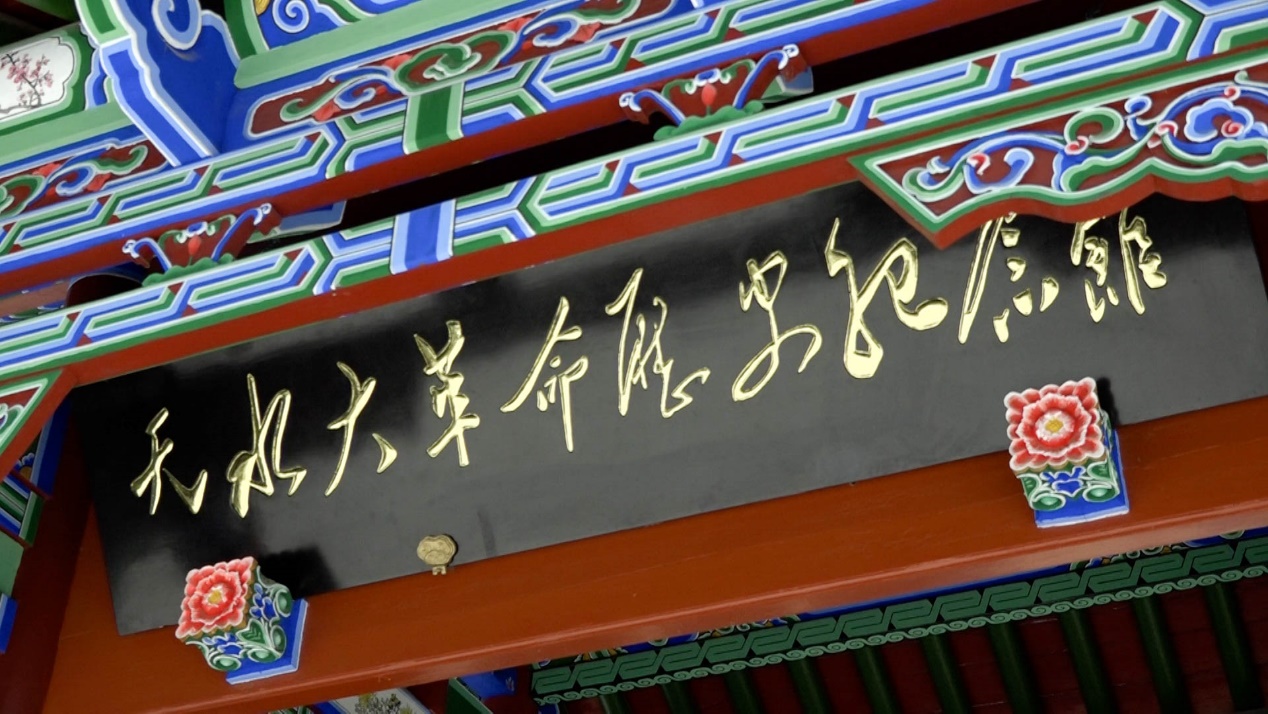 天水大革命歷史紀念館